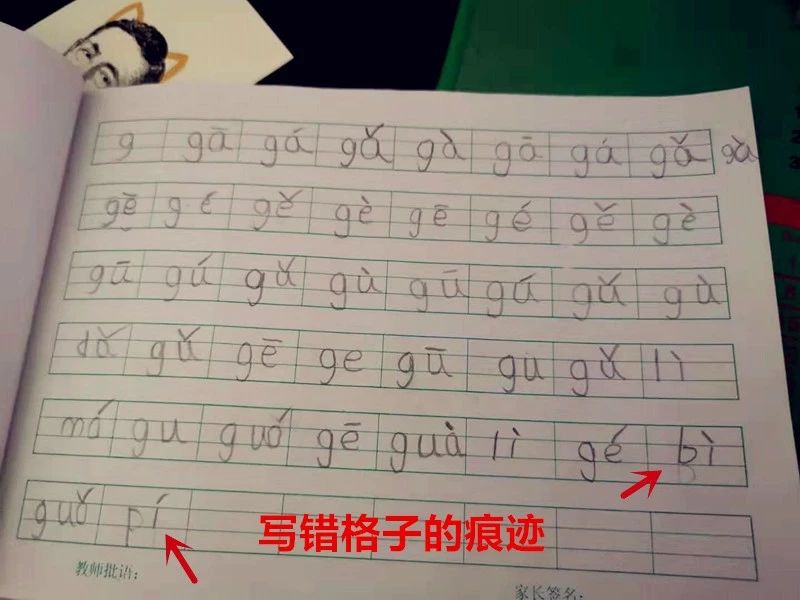 g gā gá gǎ gà gā gá gǎ gà
gē gé gě gè gē gé gě gè
gū gú gǔ gù gū gú gǔ gù
dǎ gǔ gē ge gū gu gǔ lì
má gu guó gē guà lì gé bì
guǒ pí
写错格子的痕迹
教师批语：
家长签名：